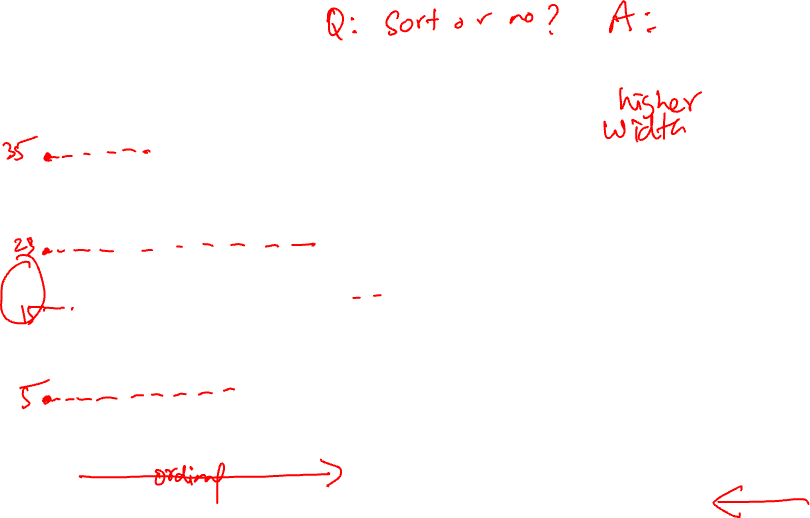 Q: Sort or no? A:
higher
width
35
15
5
ordinal